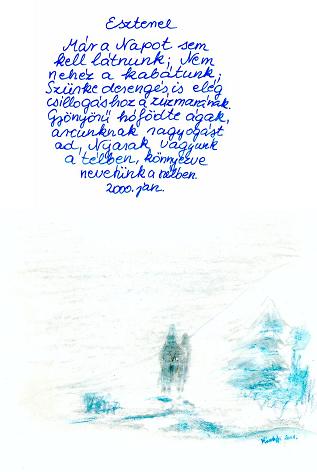 Esztenel
Már a Napot sem
kell látnunk; Nem
nehéz a kabátunk;
Szürke derengés is elég
csillogáshoz a zúzmarának.
Gyönyörű hófödte ágak,
arcunknak ragyogást
ad, Nyarak vagyunk
a télben, könnyezve
nevetünk a
2000. jan.